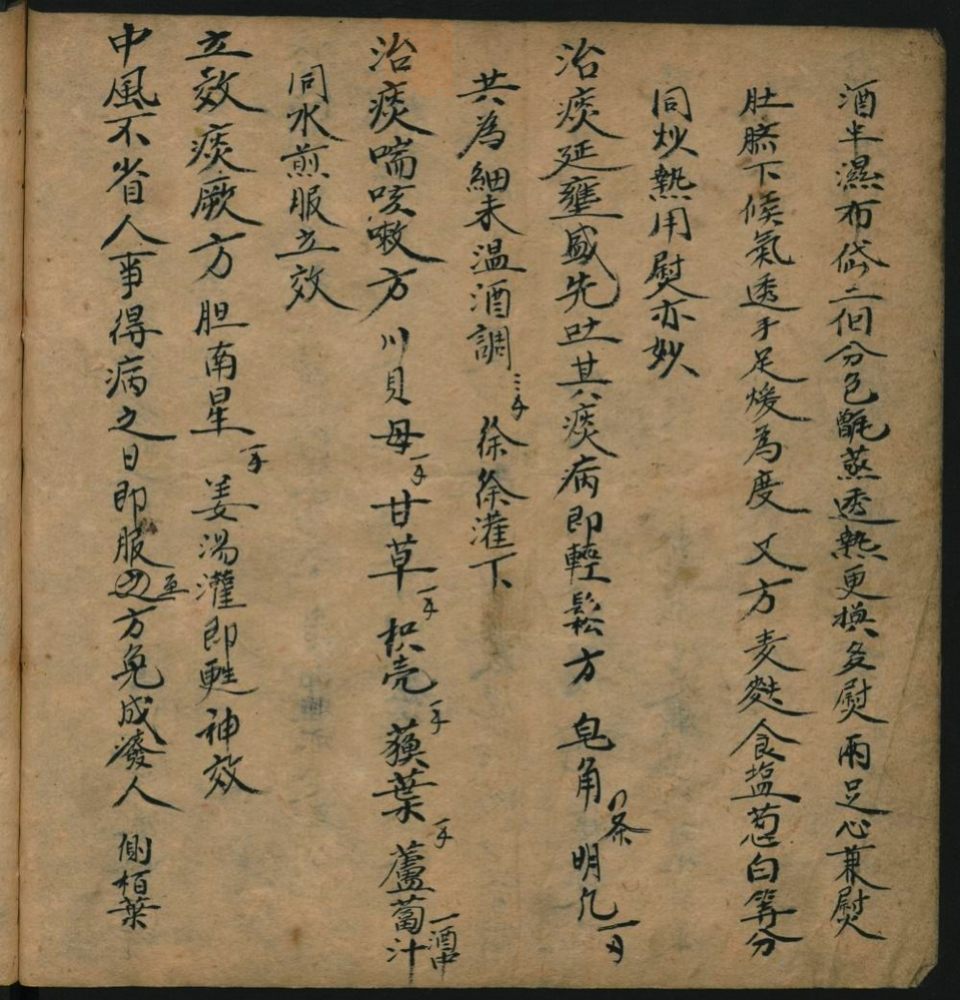 酒半濕布岱二個分包甑蒸透熱更換多熨兩足心兼熨
肚臍下候氣透手足煖為度 又方麦麩食塩葱白等分
同炒熱用熨亦妙
治痰延壅盛先吐其痰病即輕鬆方 皂角 条 明凡
共為細末温酒調 徐徐灌下
治痰喘咳嗽方 川貝母 甘草 枳壳 蘋葉 蘆蔔汁一酒中
同水煎服立效
立效痰厥方 胆南星 姜湯灌即甦神效
中風不省人事得病之日即服 方免成瘝人 側栢葉